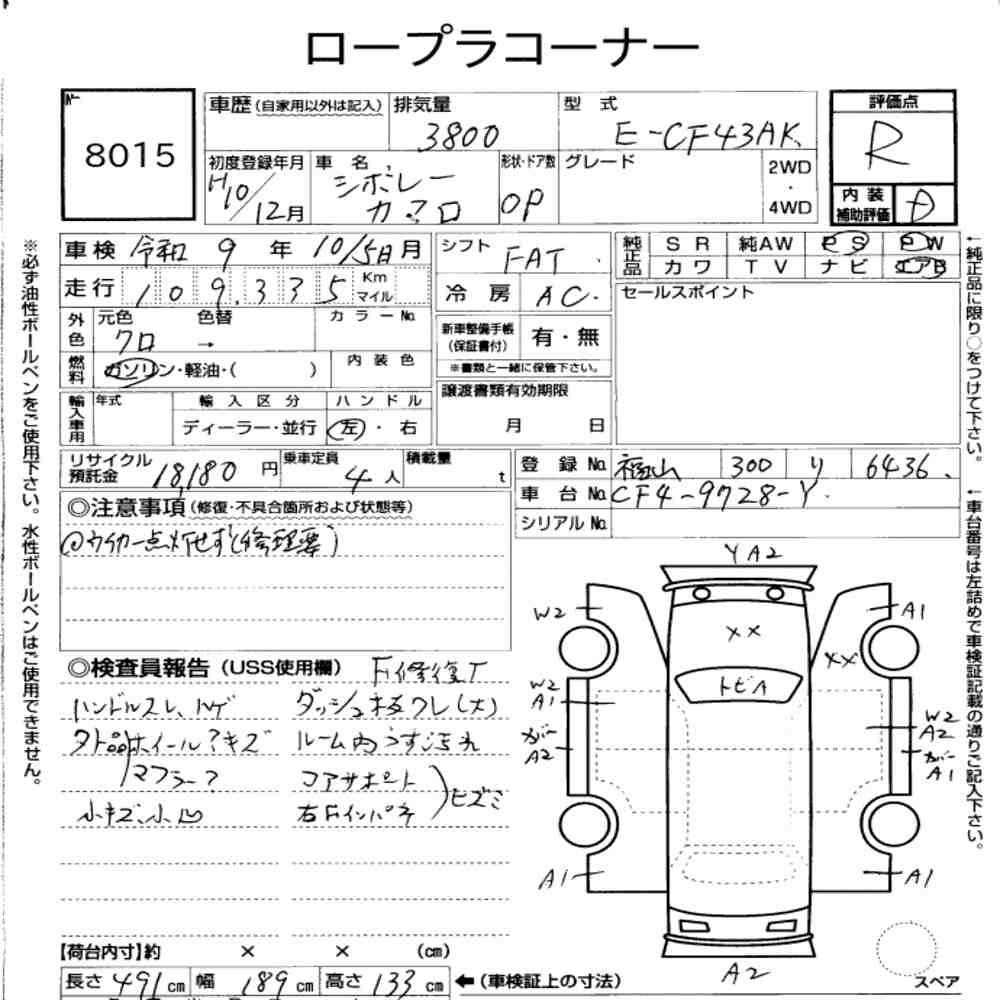 ロープラコーナー
No.
8015
車歴(自家用以外は記入)
排気量
3800
型 式
E-CF43AK
評価点
R
初度登録年月
H10/12月
車 名
シボレー
カマロ
形状・ドア数
OP
グレード
2WD
・
4WD
内 装
補助評価
D
車検 令和 9 年 10/5日 月
シフト
FAT
純正品
S R 純AW P S P W
カ ワ T V ナ ビ エアB
走行 109,335 Km マイル
冷 房 AC
セールスポイント
外色
元色 色替
クロ →
カ ラ ー No.
新車整備手帳
(保証書付)
有・無
※書類と一緒に保管下さい。
燃料
ガソリン・軽油・( )
内 装 色
輸入車用
年式
輸 入 区 分
ハ ン ド ル
ディーラー・並行
左 ・ 右
譲渡書類有効期限
月 日
リサイクル
預託金
18,180 円
乗車定員
4 人
積載量
t
登 録 No. 福山 300 り 6436
車 台 No. CF4-9728-Y
シリアル No.
◎注意事項(修復・不具合箇所および状態等)
ウインカー点灯せず(修理要)
◎検査員報告(USS使用欄) F修復T
ハンドルスレ、ハゲ ダッシュ板ワレ(大)
タト品ホイール?キズ ルーム内うす汚れ
マフラー? コアサポート
小キズ、小凹 右Fインパネ
ヒズミ
YA2
W2
A1
××
××
トビA
W2
A1
カバー
A2
W2
A2
カバー
A1
A1
A1
A2
スペア
【荷台内寸】約 × × (cm)
長さ 491 cm 幅 189 cm 高さ 133 cm ←(車検証上の寸法)
※必ず油性ボールペンをご使用下さい。水性ボールペンはご使用できません。
←純正品に限り○をつけて下さい。
←車台番号は左詰めで車検証記載の通りご記入下さい。